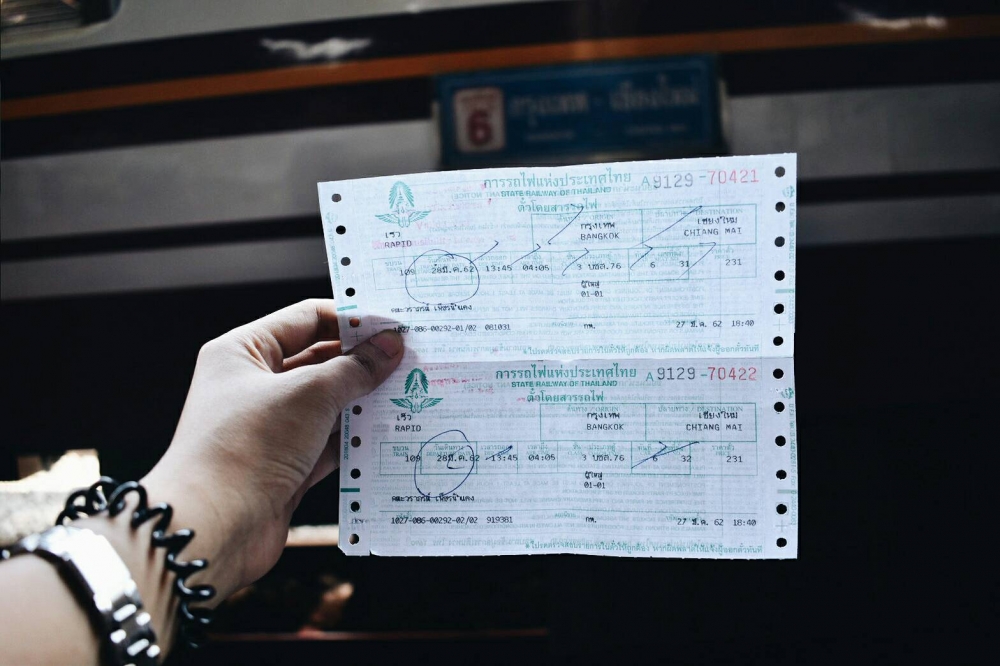 6 กรุงเทพ - เชียงใหม่
การรถไฟแห่งประเทศไทย A9129-70421
STATE RAILWAY OF THAILAND
ตั๋วโดยสารรถไฟ
ต้นทาง / ORIGIN ปลายทาง / DESTINATION
เร็ว กรุงเทพ เชียงใหม่
RAPID BANGKOK CHIANG MAI
109 28มี.ค.62 13:45 04:05 3 บชส.76 6 31 231
ผู้ใหญ่
01-01
1027-086-00292-01/02 081031 กพ. 27 มี.ค. 62 18:40
การรถไฟแห่งประเทศไทย A9129-70422
STATE RAILWAY OF THAILAND
ตั๋วโดยสารรถไฟ
ต้นทาง / ORIGIN ปลายทาง / DESTINATION
เร็ว กรุงเทพ เชียงใหม่
RAPID BANGKOK CHIANG MAI
109 28มี.ค.62 13:45 04:05 3 บชส.76 6 32 231
ผู้ใหญ่
01-01
1027-086-00292-02/02 919381 กพ. 27 มี.ค. 62 18:40